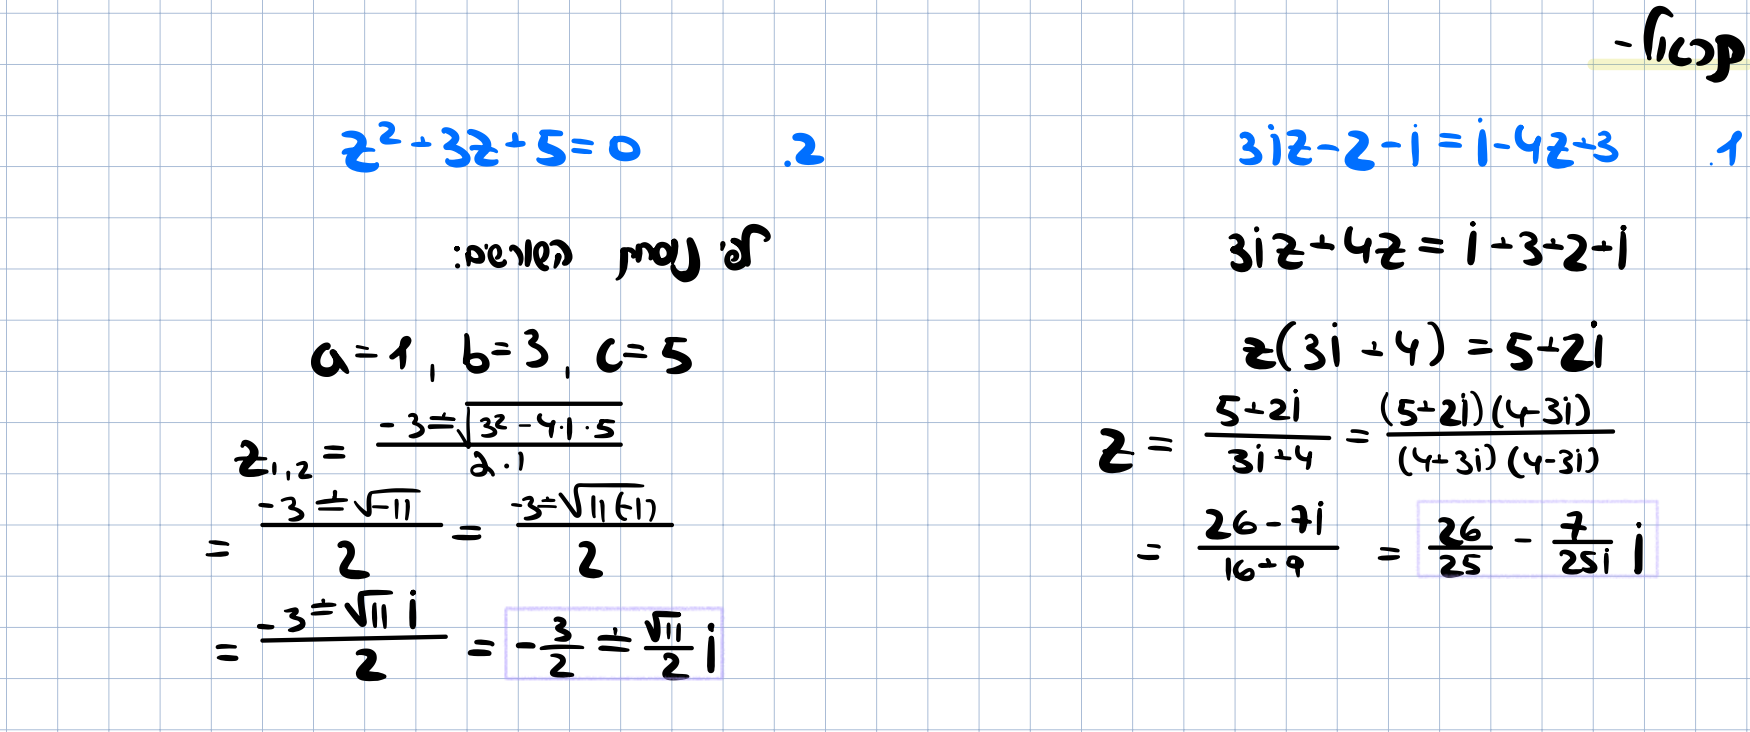 תרגול -
1. 3iz-2-i=i-4z+3
3iz+4z=i+3+2+i
z(3i+4)=5+2i
z = (5+2i)/(3i+4) = ((5+2i)(4-3i))/((4+3i)(4-3i))
= (26-7i)/(16+9) = 26/25 - 7/(25i) i
2. z²+3z+5=0
לפי נוסחת השורשים:
a=1, b=3, c=5
z₁,₂ = (-3±√(3²-4·1·5))/(2·1)
= (-3±√-11)/2 = (-3±√(11(-1)))/2
= (-3±√11 i)/2 = -3/2 ± √11/2 i